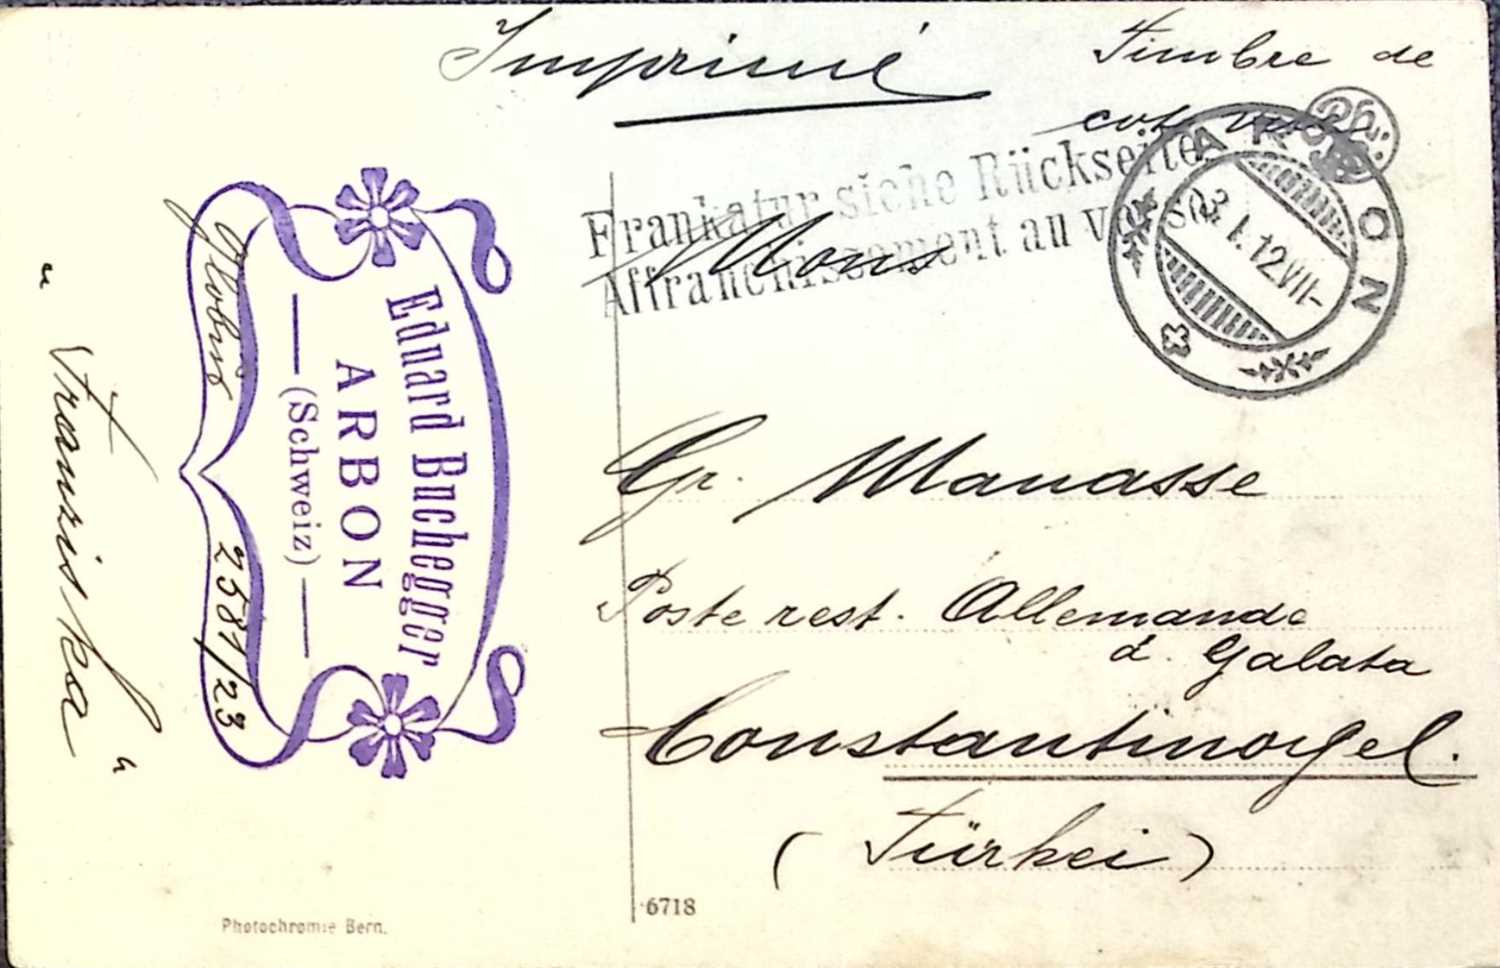 Imprimé
Timbre de
cote vue
Frankatur siehe Rückseite
Affranchissement au verso
ARBON
3.I.12.VII-
Mons
Gr. Manasse
Poste rest. Allemande
à Galata
Constantinopel.
(Türkei)
Eduard Buchegger
ARBON
(Schweiz)
Globus
2581/23
Photochromie Bern.
6718